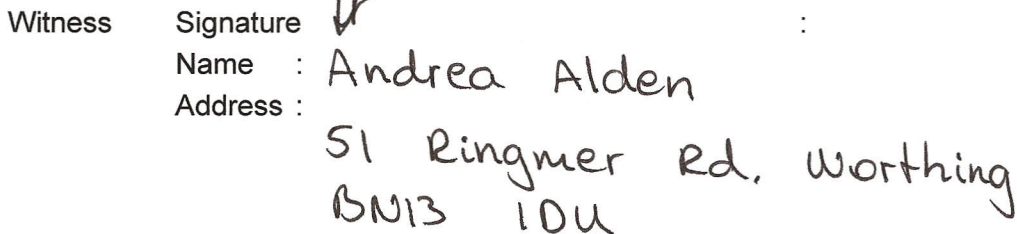 Witness Signature :
Name : Andrea Alden
Address :
51 Ringmer Rd, Worthing
BN13 1DU